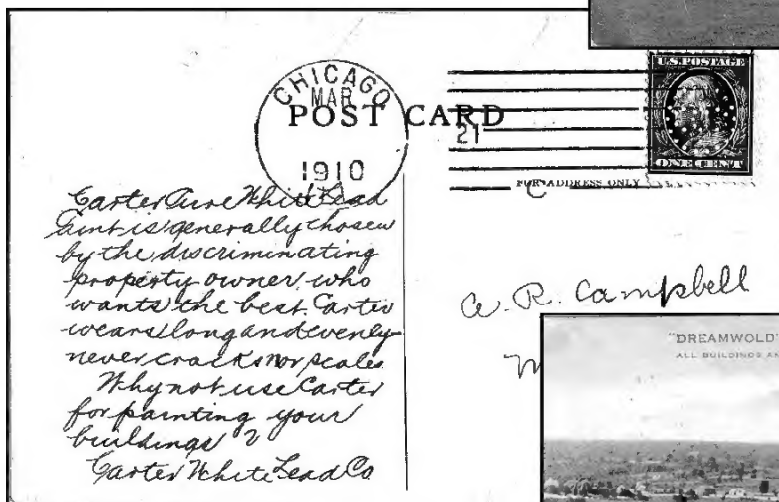 U.S. POSTAGE
ONE CENT
CHICAGO
MAR
21
1910
POST CARD
FOR ADDRESS ONLY
Carter Pure White Lead
Paint is generally chosen
by the discriminating
property owner who
wants the best. Carter
wears long and evenly
never cracks nor scales
Why not use Carter
for painting your
buildings?
Carter White Lead Co
A. R. Campbell
"DREAMWOLD"
ALL BUILDINGS